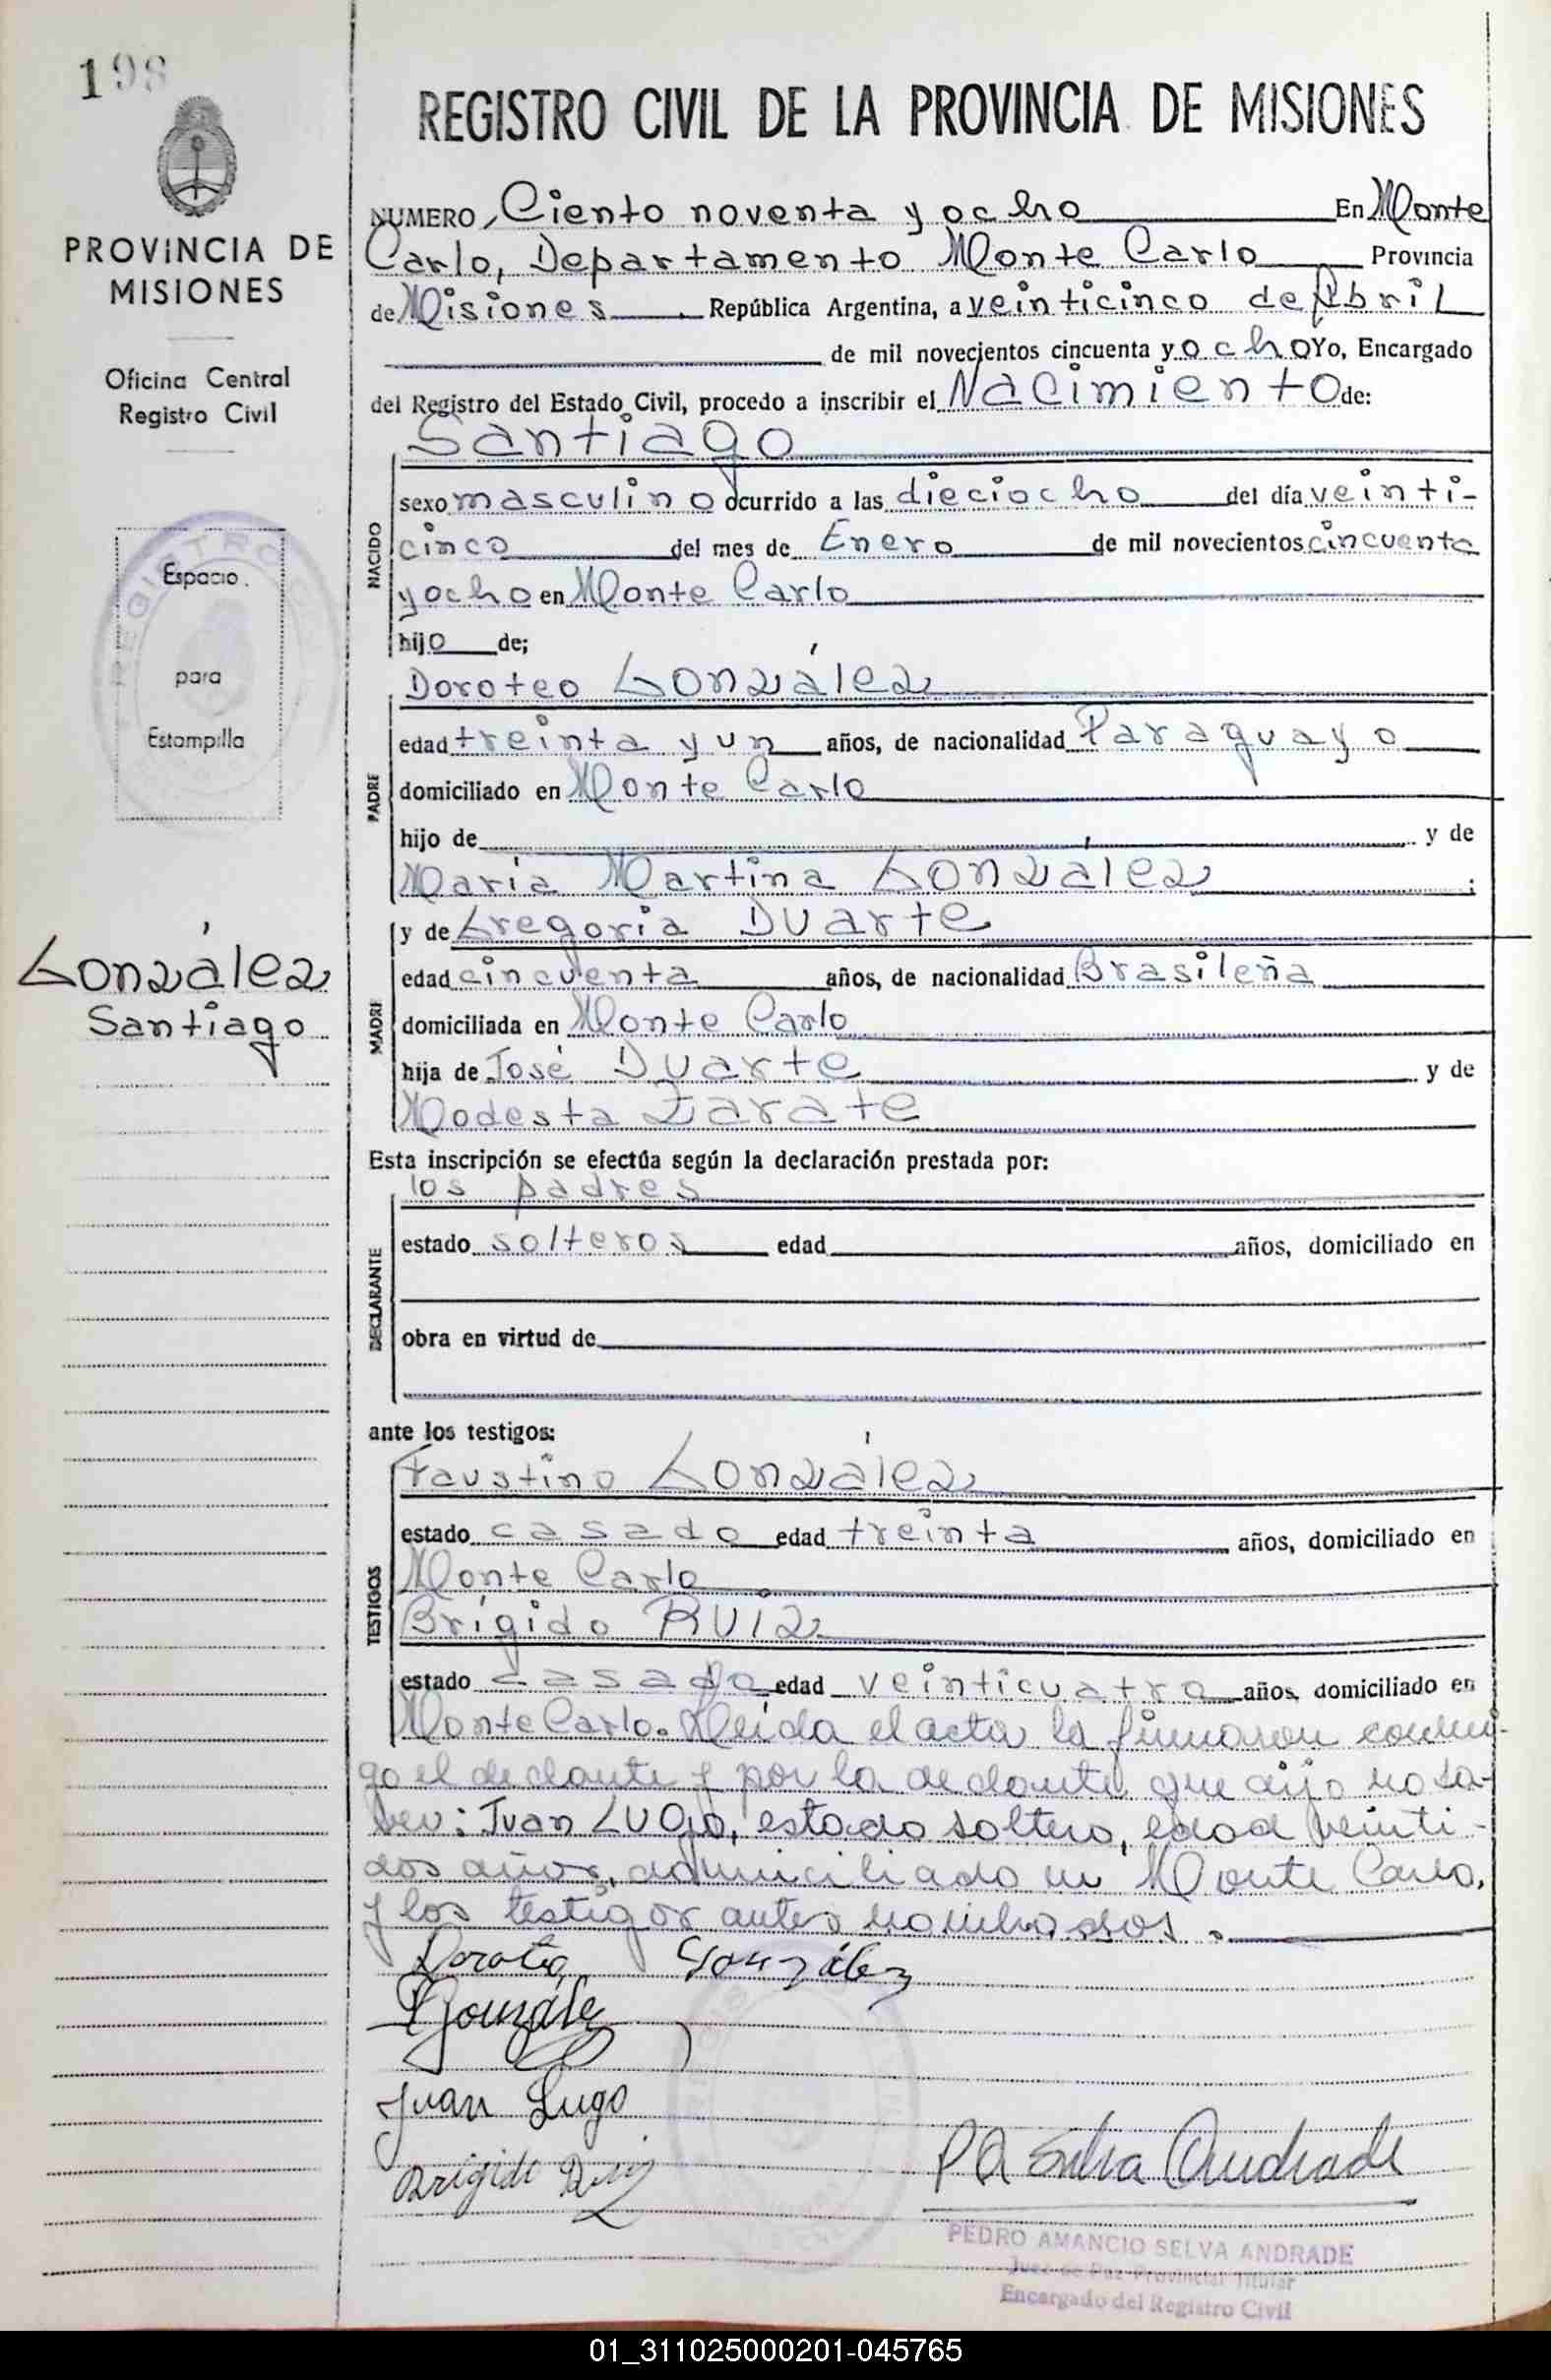 198
PROVINCIA DE
MISIONES
Oficina Central
Registro Civil
Espacio
para
Estampilla
González
Santiago
REGISTRO CIVIL DE LA PROVINCIA DE MISIONES
NUMERO, Ciento noventa y ocho En Monte
Carlo, Departamento Monte Carlo Provincia
de Misiones. República Argentina, a veinticinco de Abril
de mil novecientos cincuenta y ocho Yo, Encargado
del Registro del Estado Civil, procedo a inscribir el Nacimiento de:
Santiago
NACIDO
sexo masculino ocurrido a las dieciocho del día veinti-
cinco del mes de Enero de mil novecientos cincuenta
y ocho en Monte Carlo
hijo de;
Doroteo González
PADRE
edad treinta y un años, de nacionalidad Paraguayo
domiciliado en Monte Carlo
hijo de y de
María Martina González ;
y de Gregoria Duarte
MADRE
edad cincuenta años, de nacionalidad Brasileña
domiciliada en Monte Carlo
hija de José Duarte y de
Modesta Zarate
Esta inscripción se efectúa según la declaración prestada por:
los padres
DECLARANTE
estado solteros edad años, domiciliado en
obra en virtud de
ante los testigos:
Faustino González
TESTIGOS
estado casado edad treinta años, domiciliado en
Monte Carlo
Brígido Ruiz
estado casado edad veinticuatro años, domiciliado en
Monte Carlo. Leída el acta la firmaron conmi-
go el declante y por la declante que dijo no sa-
ber: Juan Lugo, estado soltero, edad veinti-
dos años, domiciliado en Monte Carlo,
y los testigos antes nombrados.
Doroteo González
González
Juan Lugo
Brígido Ruiz
P A Selva Andrade
PEDRO AMANCIO SELVA ANDRADE
Juez de Paz Provincial Titular
Encargado del Registro Civil
01_311025000201-045765